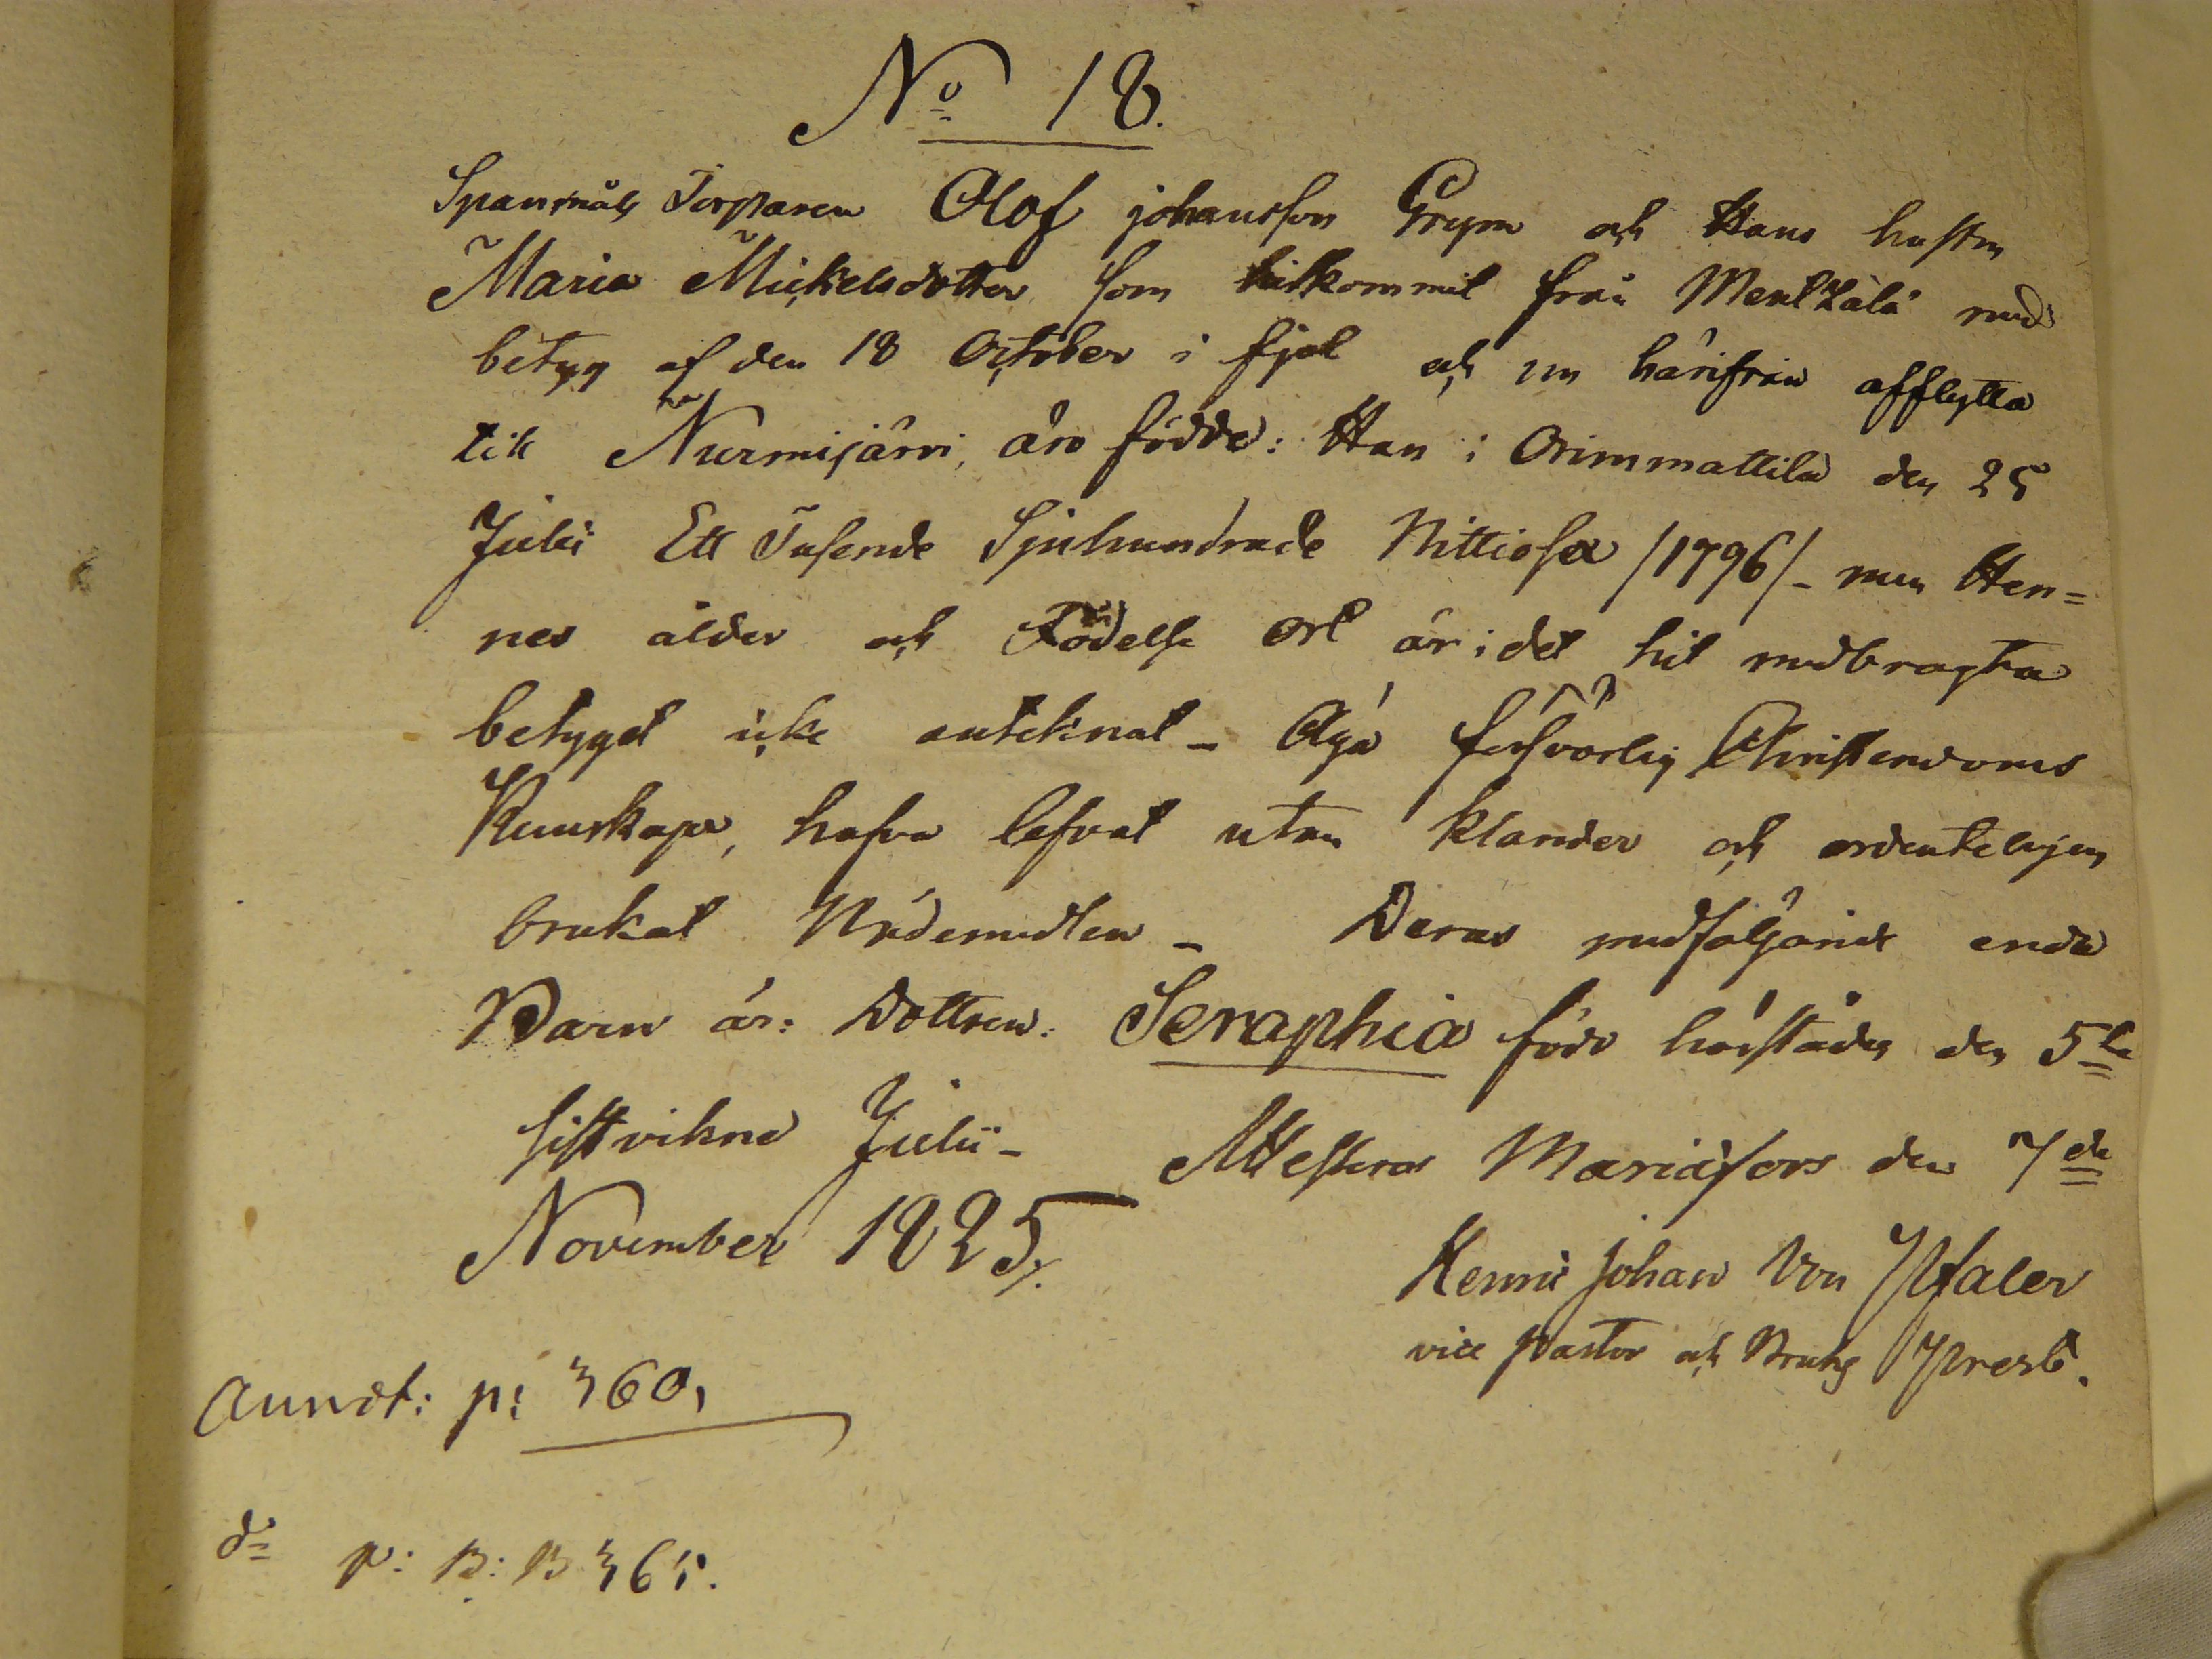 No 18.
Spanmåls Torparen Olof Johansson Grym och Hans hustru
Maria Mickelsdotter som hitkommit från Mentzälä med
betyg af den 18 October i fjol och nu härifrån afflytta
till Nurmijärvi, äro födde: Han i Orimmattila den 25
Julii Ett Tusende Sjuhundrade Nittiosex /1796/ - men Hen=
nes ålder och Födelse ort är i det hit medbragta
betyget icke antecknat - Äga försvarlig Christendoms
Kunskap, hafva lefvat utan klander och ordenteligen
brukat Nådemedlen - Deras medföljande enda
Barn är: Dottren: Seraphia född härstädes den 5te
sistvikne Julii - Attesteras Mariäfors den 7de
November 1825/.
Henric Johan Von Pfaler
vice pastor och Bruks Prest.
Annot: p: 360,
do p: B: B 365.